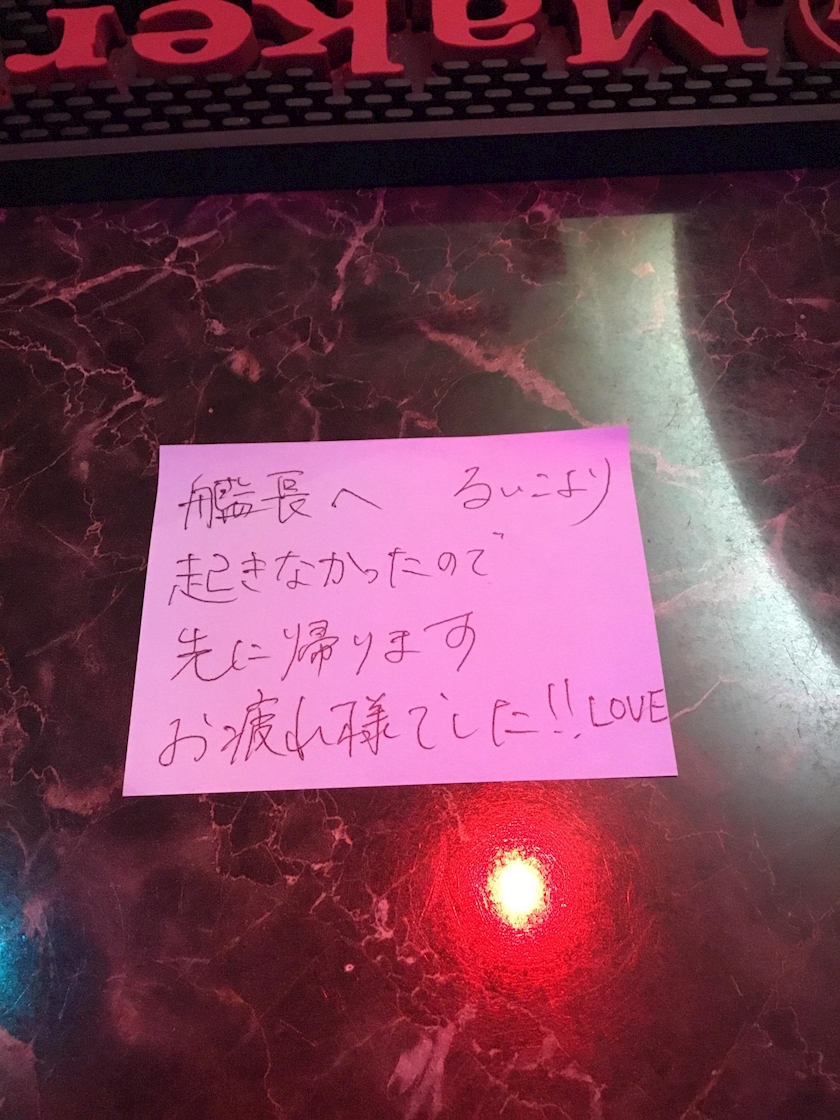 Maker
艦長へ　るいこより
起きなかったので
先に帰ります
お疲れ様でした!! LOVE